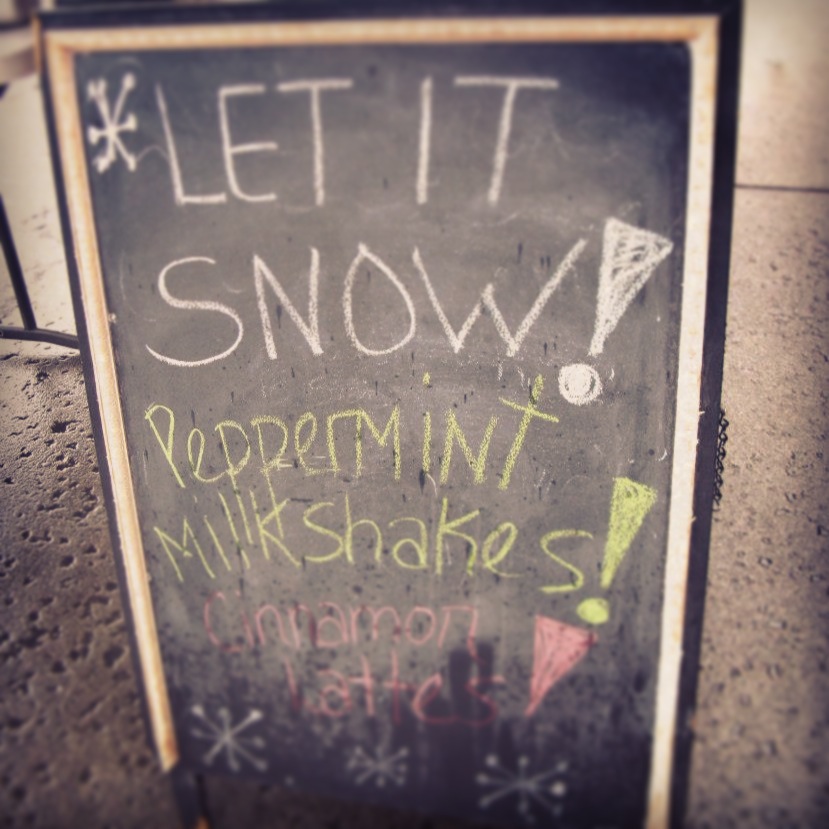 LET IT
SNOW!
Peppermint
Millkshakes!
Cinnamon
Lattes!